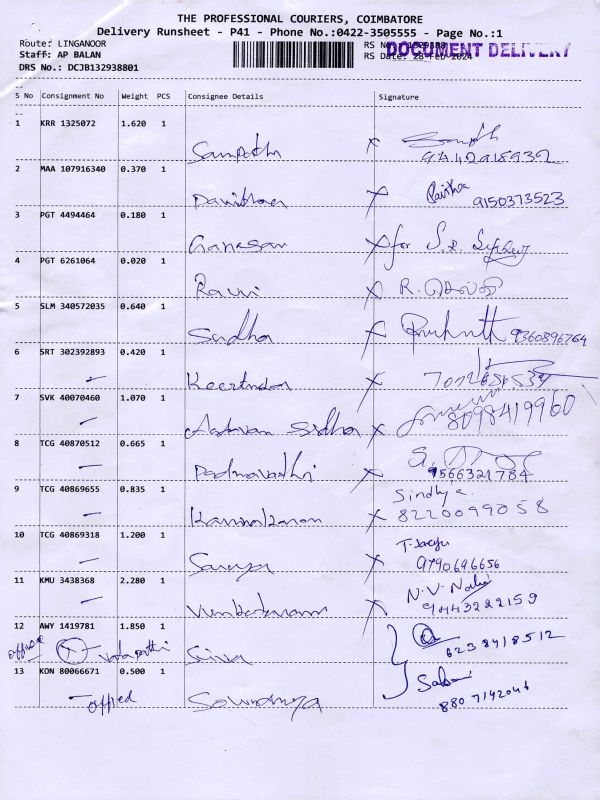 THE PROFESSIONAL COURIERS, COIMBATORE
Delivery Runsheet - P41 - Phone No.:0422-3505555 - Page No.:1
Route: LINGANOOR
RS No.: 1329388
DOCUMENT DELIVERY
Staff: AP BALAN
RS Date: 28-Feb-2024
DRS No.: DCJB132938801
S No Consignment No Weight PCS Consignee Details Signature
1 KRR 1325072 1.620 1
Sampath x
9442918932
2 MAA 107916340 0.370 1
x Pavithra 9150373523
3 PGT 4494464 0.180 1
Ganesan x for
4 PGT 6261064 0.020 1
Ravi x R.
5 SLM 340572035 0.640 1
Sudha x 9360896764
6 SRT 302392893 0.420 1
x
7 SVK 40070460 1.070 1
Sudha x 8098419960
8 TCG 40870512 0.665 1
Padmavathi x 9566321784
9 TCG 40869655 0.835 1
Sindhya
x 8220099058
10 TCG 40869318 1.200 1
x 9790696656
11 KMU 3438368 2.280 1
N.V.
x 9443222159
12 AWY 1419781 1.850 1
Siva 6238418512
13 KON 80066671 0.500 1
Sowmya 8807142046